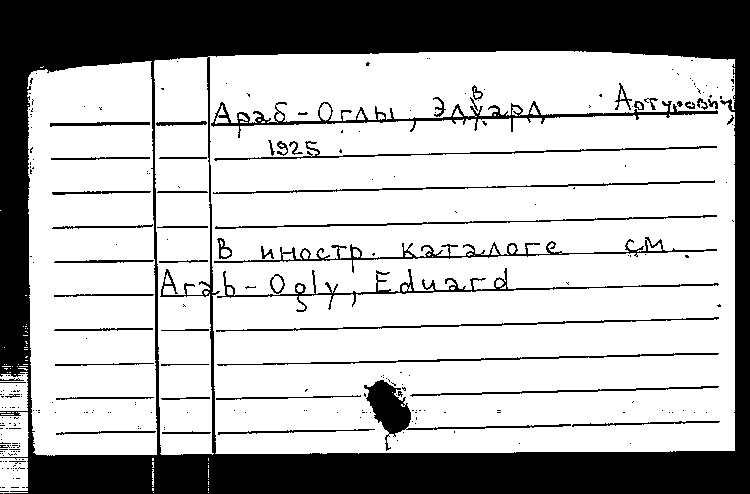 Араб-Оглы, Эдвард Артурович,
1925.
В иностр. каталоге см.
Arab-Ogly, Eduard